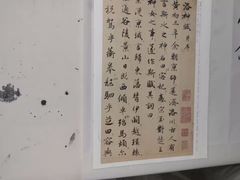 洛神賦 并序
黃初三年余朝京師還濟洛川古人有
言斯水之神名曰宓妃感宋玉對楚王
神女之事遂作斯賦其詞曰
余從京域言歸東藩背伊闕越轘轅
經通谷陵景山日既西傾車殆馬煩爾
稅駕乎蘅皋秣駟乎芝田容與